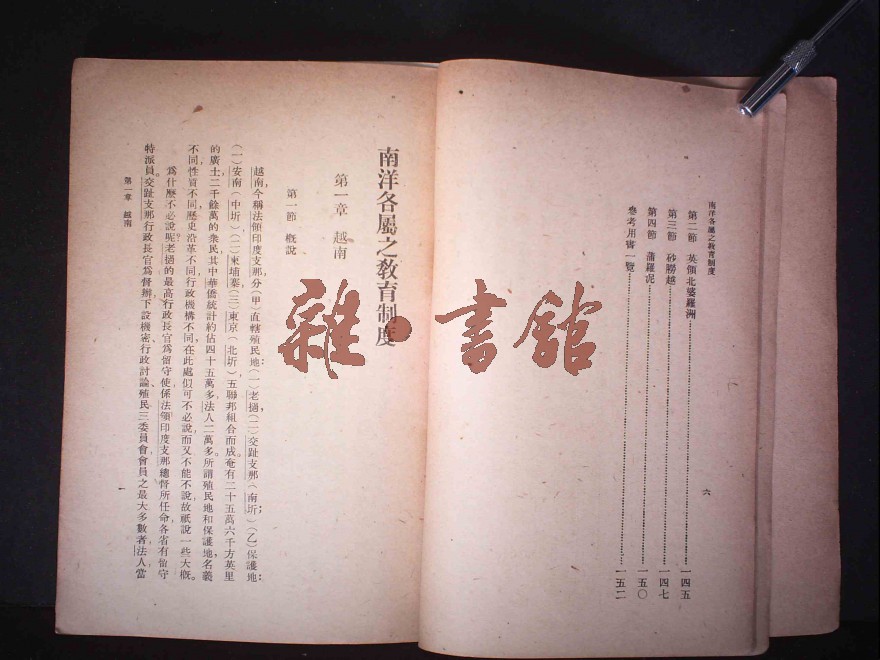 南洋各屬之教育制度
第二節 英領北婆羅洲 一四五
第三節 砂朥越 一四七
第四節 蒲羅呢 一五〇
參考用書一覽 一五二
六
南洋各屬之教育制度
第一章 越南
第一節 概說
越南,今稱法領印度支那,分(甲)直轄殖民地:(一)老撾,(二)交趾支那(南圻);(乙)保護地:
(一)安南(中圻),(二)柬埔寨,(三)東京(北圻),五聯邦組合而成。奄有二十五萬六千方英里
的廣土,二千餘萬的衆民,其中華僑統計約佔四十五萬多,法人二萬多。所謂殖民地和保護地,名義
不同,性質不同,歷史沿革不同,行政機構不同,在此處似可不必說,而又不能不說,故祇說一些大概。
爲什麽不必說呢?老撾的最高行政長官爲留守使,係法領印度支那總督所任命,各省有留守
特派員。交趾支那行政長官爲督辦,下設機密、行政討論、殖民三委員會,會員之最大多數者,法人當
第一章 越南
一
雜·書館